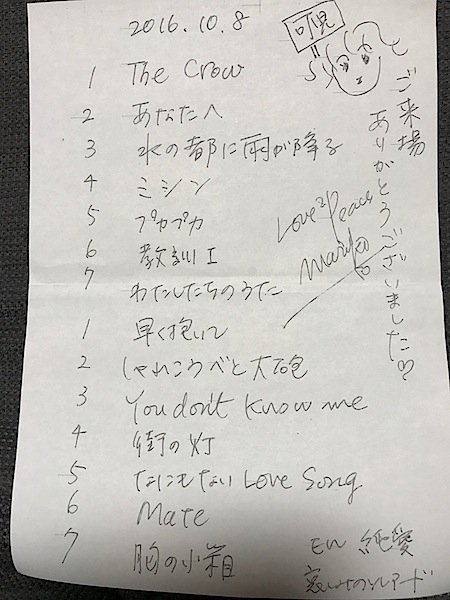 2016.10.8
1 The Crow
2 あなたへ
3 水の都に雨が降る
4 ミシン
5 プカプカ
6 教訓I
7 わたしたちのうた
1 早く抱いて
2 しゃれこうべと大砲
3 You don't know me
4 街の灯
5 なにもない Love Song
6 Mate
7 胸の小箱
En 純愛
哀しみのソレアード
ご来場
ありがとうございました♡
Love2Peace
Mariko